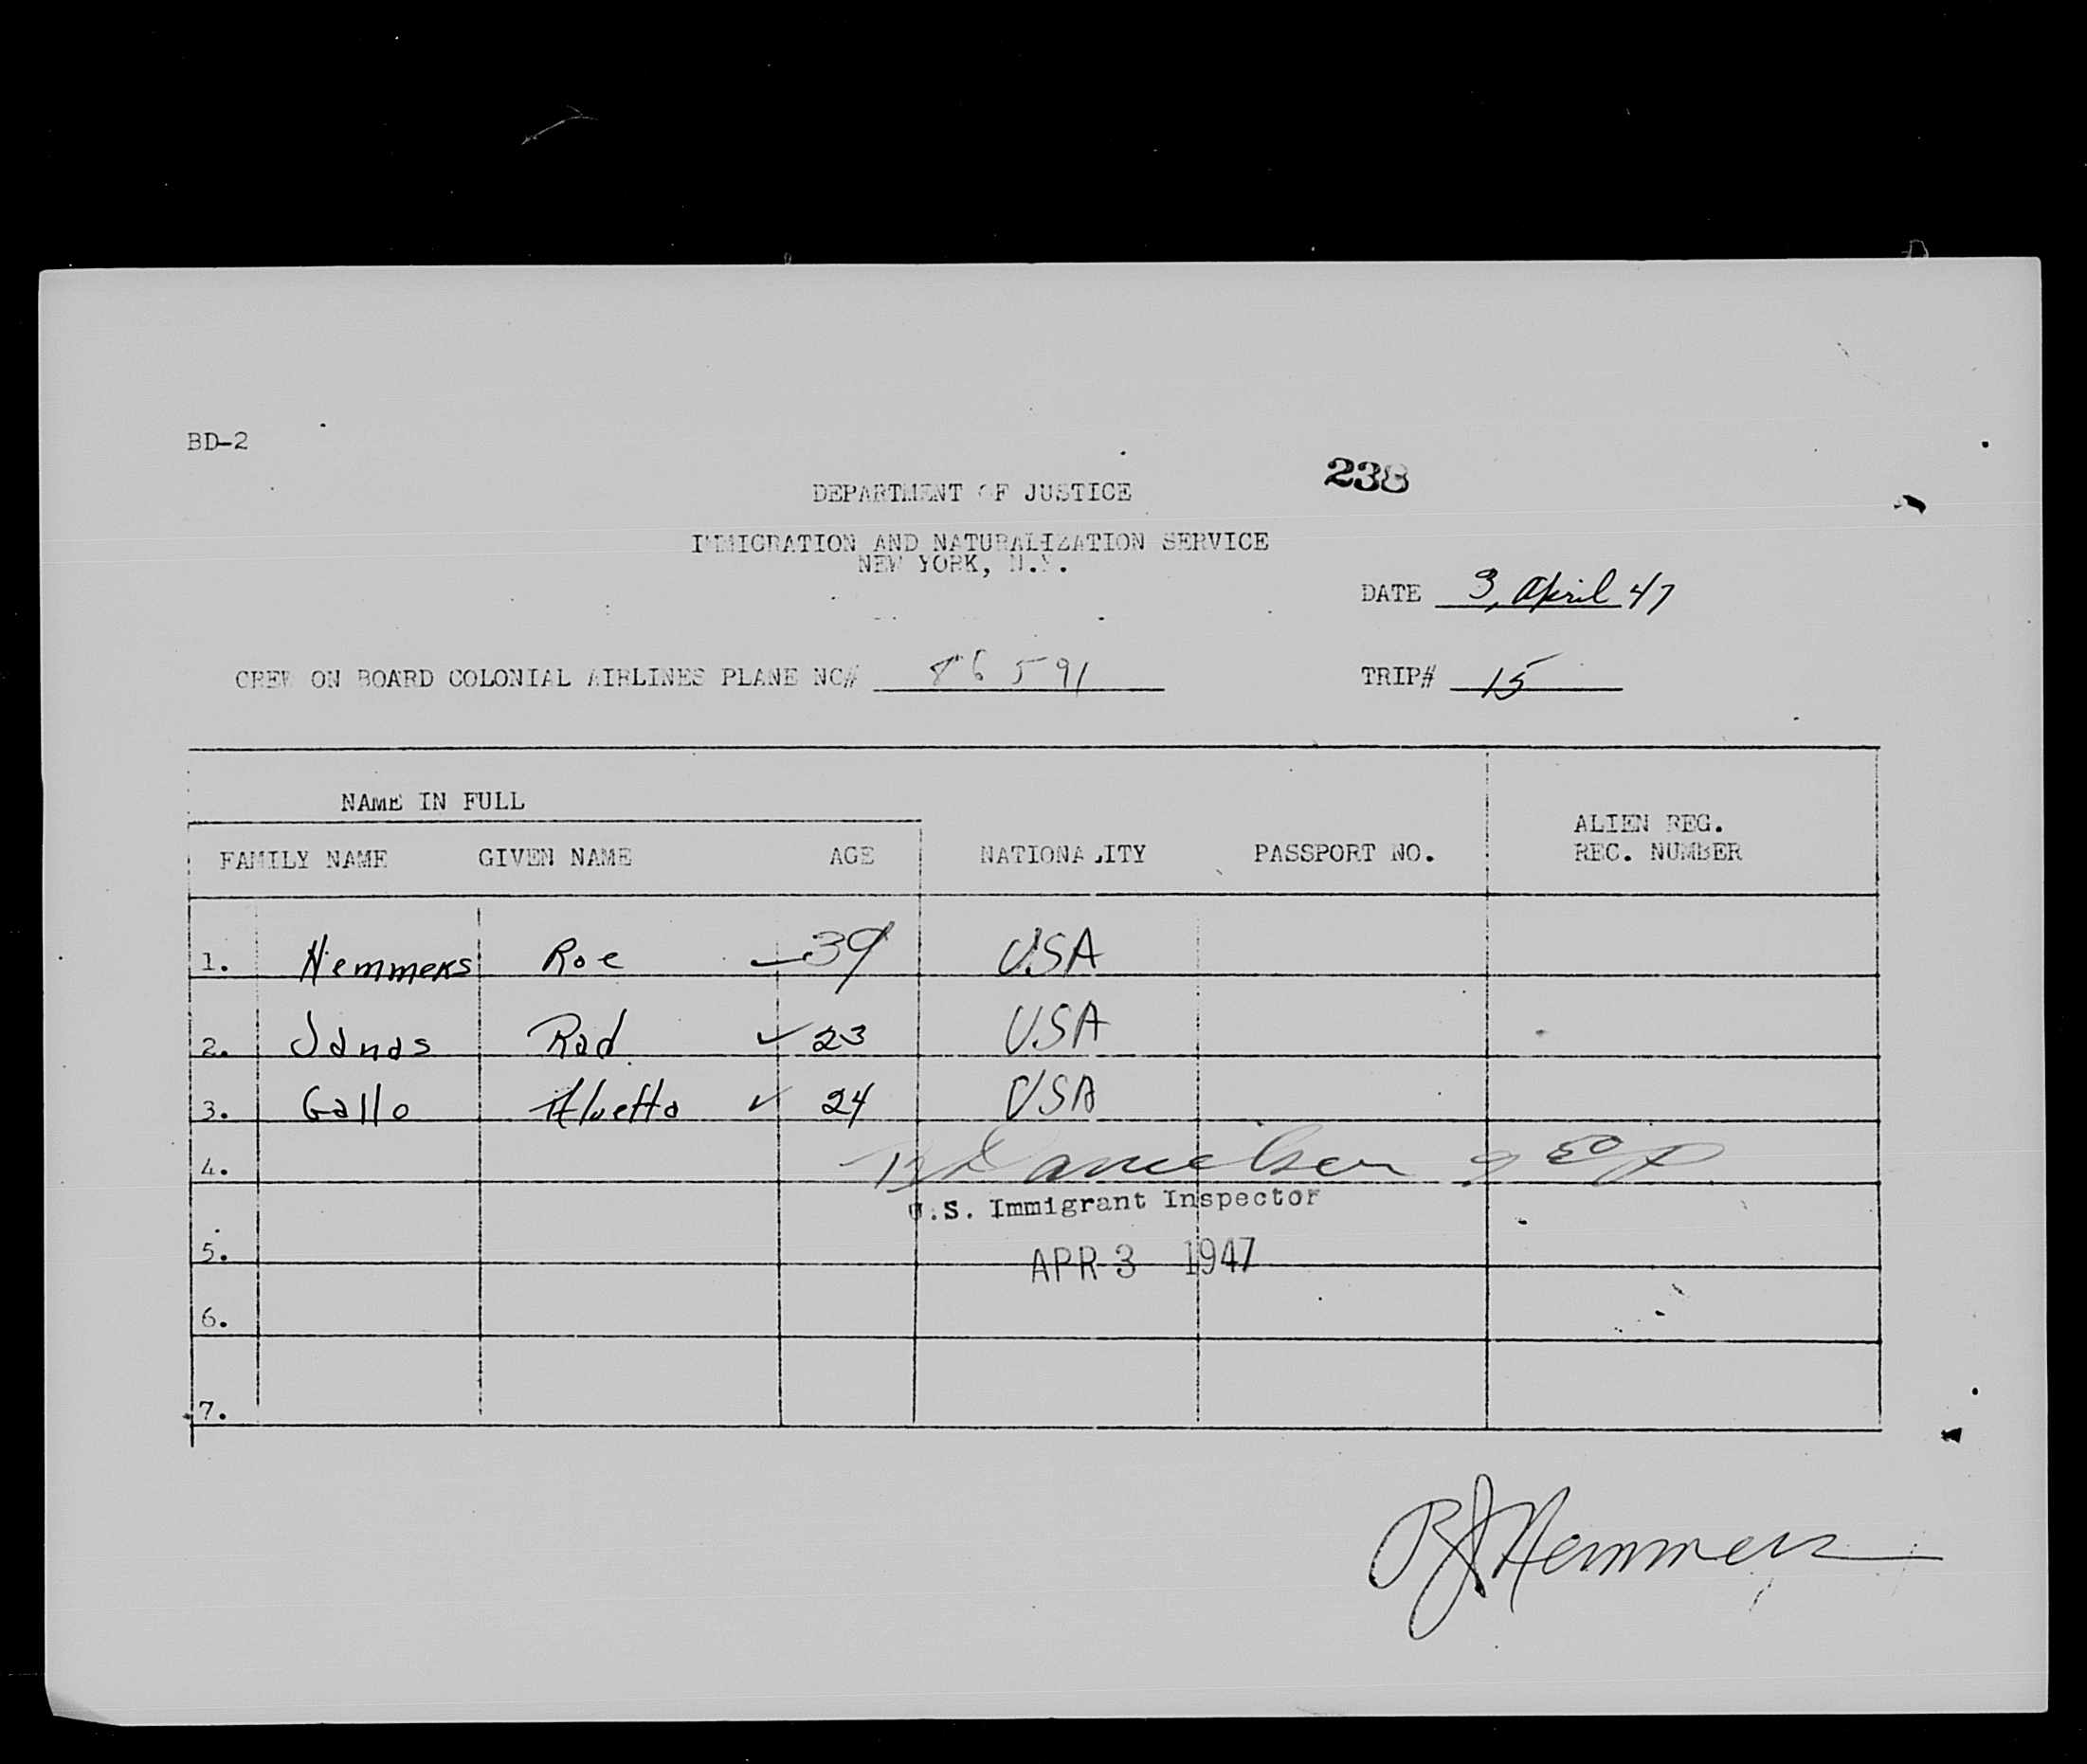 BD-2
238
DEPARTMENT OF JUSTICE
IMMIGRATION AND NATURALIZATION SERVICE
NEW YORK, N.Y.
DATE 3, April 47
CREW ON BOARD COLONIAL AIRLINES PLANE NC# 86591
TRIP# 15
NAME IN FULL
FAMILY NAME GIVEN NAME AGE NATIONALITY PASSPORT NO. ALIEN REG. REC. NUMBER
1. Hemmers Roe 39 USA
2. Janas Rad 23 USA
3. Gallo Alvetta 24 USA
4. Danielsen
U.S. Immigrant Inspector
5. APR 3 1947
6.
7.
RJHemmers